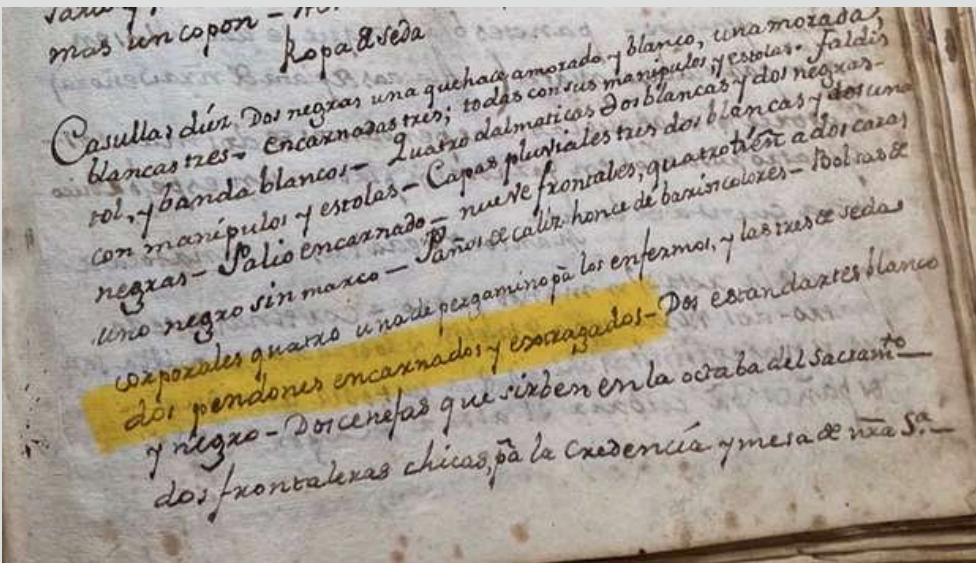 mas un copon -
Ropa & seda
Casullas diéz. Dos negras una quehace amorado y blanco, una morada,
blancas tres - encarnadas tres; todas con sus manipulos, y estolas. faldis
tol, y banda blancos - Quatro dalmaticas dos blancas y dos negras -
con manipulos y estolas - Capas pluviales tres dos blancas y una
negras - Palio encarnado - nueve frontales, quatro tñen a dos caras
uno negro sin marco - Paños & caliz honce de barios colores - Bolsas &
corporales quatro una de pergamino pª los enfermos, y las tres & seda
dos pendones encarnados y estragados - Dos estandartes blanco
y negro - Dos cenefas que sirben en la octaba del Sacramto
dos frontaleras chicas, pª la Credencia y mesa & nrã Sª.